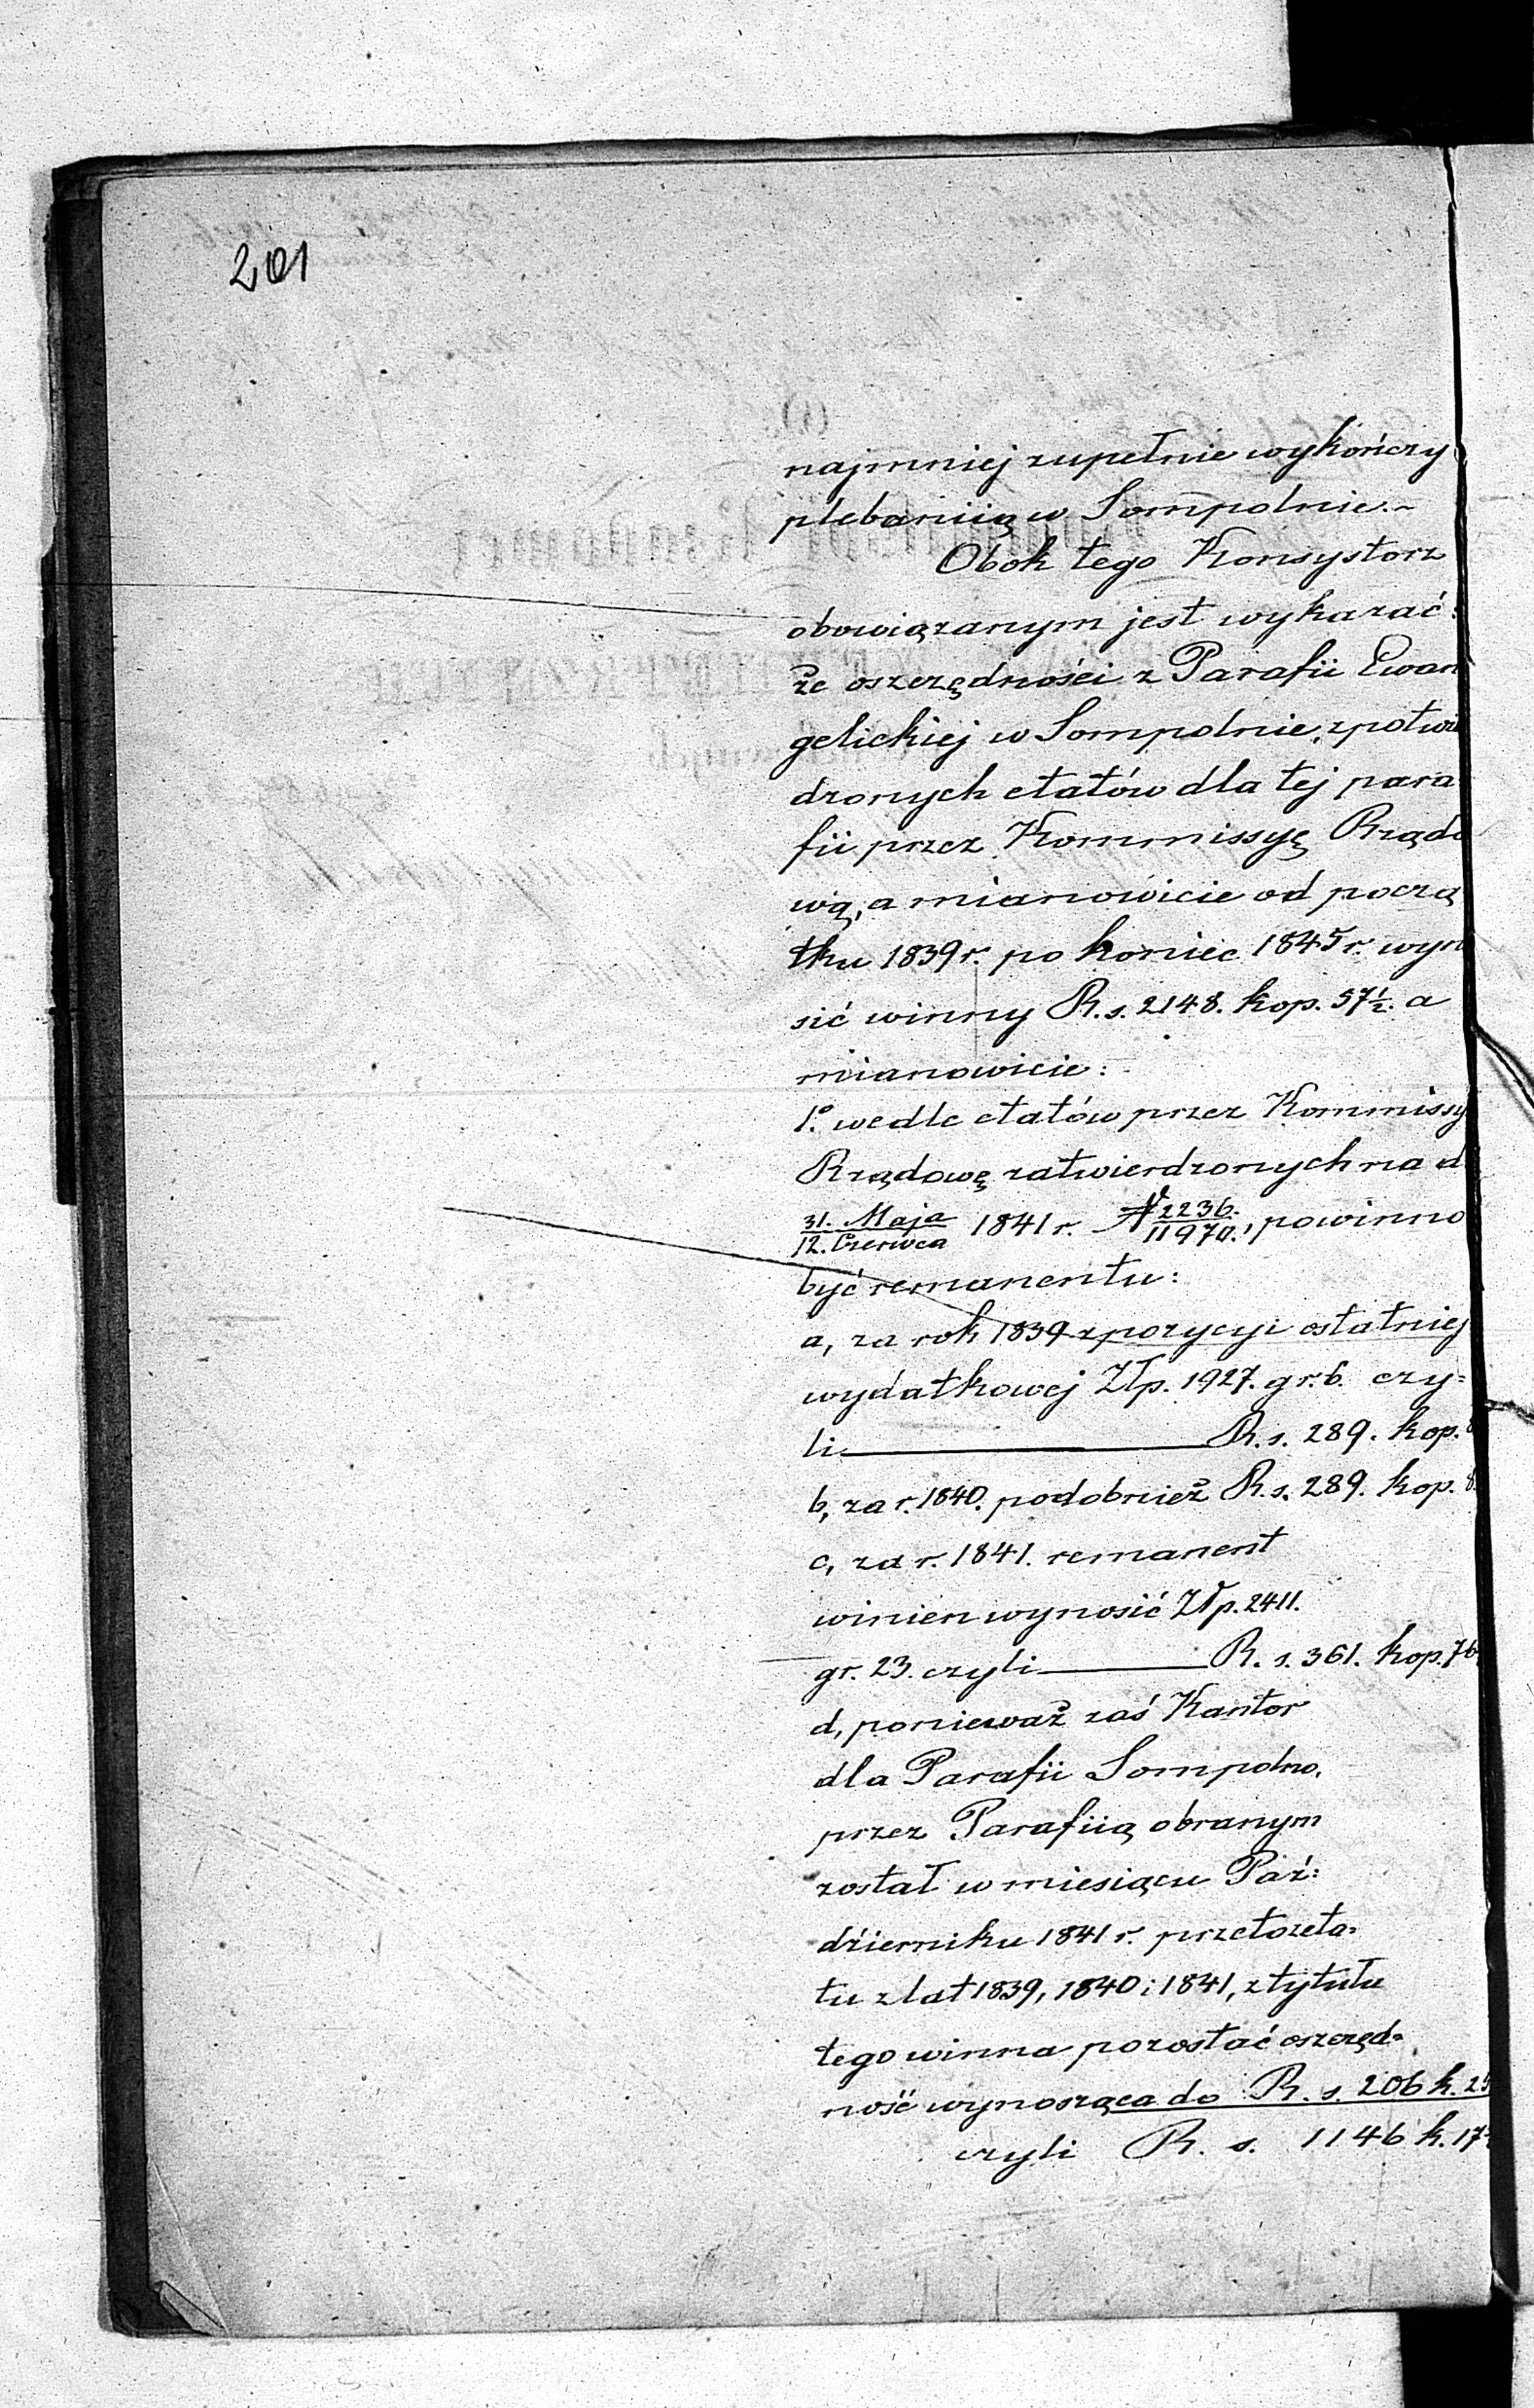 201
najmniej zupełnie wykończy
plebaniią w Sompolnie.-
Obok tego Konsystorz
obowiązanym jest wykazać:
że oszczędności z Parafii Ewan
gelickiej w Sompolnie, z potwier
dzonych etatów dla tej para
fii przez Kommissyę Rządo
wą, a mianowicie od począ
tku 1839 r. po koniec 1845 r. wyn
sić winny R. s. 2148. kop. 57½. a
mianowicie:
1.° wedle etatów przez Kommissy
Rządowę zatwierdzonych na d
31. Maja/12. Czerwca 1841 r. N 2236./11970., powinno
być remanentu:
a, za rok 1839 z pozycyi ostatniej
wydatkowej Złp. 1927. gr. 6. czy=
li R. s. 289. kop. 8
b, za r. 1840. podobnież R. s. 289. kop. 8
c, za r. 1841. remanent
winien wynosić Złp. 2411.
gr. 23. czyli R. s. 361. kop. 76
d, ponieważ zaś Kantor
dla Parafii Sompolno,
przez Parafiią obranym
został w miesiącu Paź:
dzierniku 1841 r. przeto z eta=
tu z lat 1839, 1840 i 1841, z tytułu
tego winna pozostać oszczęd=
ność wynosząca do R. s. 206 k. 25
czyli R. s. 1146 k. 17